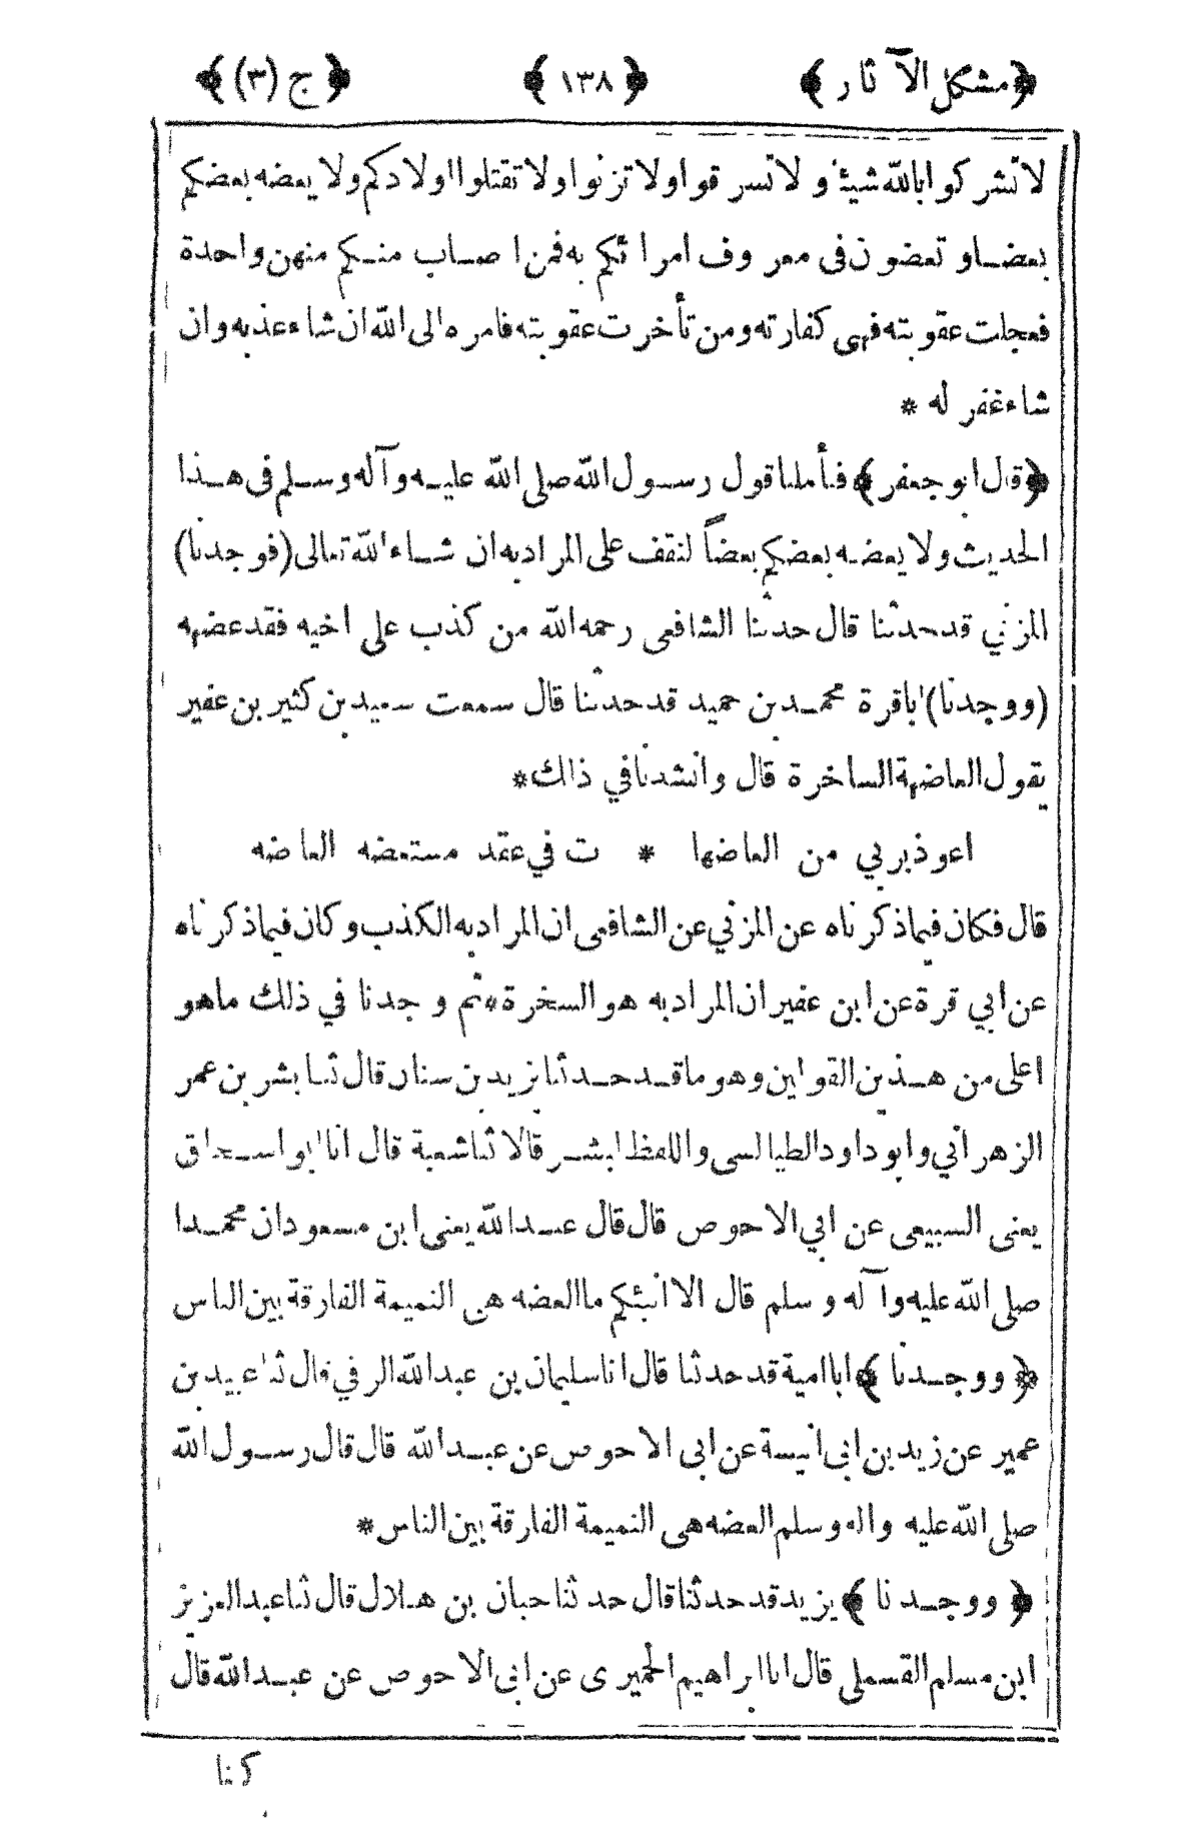 ﴿مشكل الآثار﴾ ﴿١٣٨﴾ ﴿ج (٣)﴾
لا تشركوا بالله شيئا ولا تسرقوا ولا تزنوا ولا تقتلوا اولادكم ولا يعضه بعضكم
بعضا و تعضون فى معروف امرائكم به فمن اصاب منكم منهن واحدة
فعجلت عقوبته فهى كفارته ومن تأخرت عقوبته فامره الى الله ان شاء عذبه وان
شاء غفر له *
﴿قال ابو جعفر﴾ فتأملنا قول رسول الله صلى الله عليه وآله وسلم فى هذا
الحديث ولا يعضه بعضكم بعضاً لنقف على المراد به ان شاء الله تعالى (فوجدنا)
المزني قد حدثنا قال حدثنا الشافعى رحمه الله من كذب على اخيه فقد عضهه
(ووجدنا) اباقرة محمد بن حميد قد حدثنا قال سمعت سعيد بن كثير بن عفير
يقول العاضهة الساخرة قال وانشدنا في ذلك *
اعوذ بربي من العاضها * ت في عقد مستعضه العاضه
قال فكان فيما ذكرناه عن المزني عن الشافعى ان المراد به الكذب وكان فيما ذكرناه
عن ابي قرة عن ابن عفير ان المراد به هو السخرة * ثم وجدنا في ذلك ماهو
اعلى من هذين القولين وهو ما قد حدثنا يزيد بن سنان قال ثنا بشر بن عمر
الزهراني وابو داود الطيالسى واللفظ لبشر قالا ثنا شعبة قال انا ابو اسحاق
يعنى السبيعى عن ابي الاحوص قال قال عبد الله يعنى ابن مسعود ان محمدا
صلى الله عليه وآله وسلم قال الا انبئكم ما العضه هى النميمة الفارقة بين الناس
﴿ووجدنا﴾ ابا امية قد حدثنا قال انا سليمان بن عبد الله الرقي قال ثنا عبيد بن
عمير عن زيد بن ابى انيسة عن ابى الاحوص عن عبد الله قال قال رسول الله
صلى الله عليه واله وسلم العضه هى النميمة الفارقة بين الناس *
﴿ووجدنا﴾ يزيد قد حدثنا قال حدثنا حبان بن هلال قال ثنا عبد العزيز
ابن مسلم القسملى قال انا ابراهيم الحميرى عن ابى الاحوص عن عبد الله قال
كنا